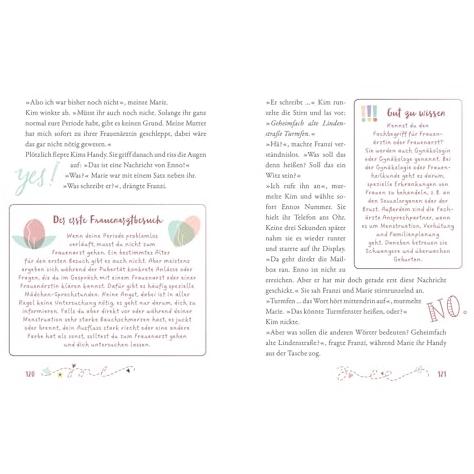 »Also ich war bisher noch nicht«, meinte Marie.
Kim winkte ab. »Müsst ihr auch noch nicht. Solange ihr ganz
normal eure Periode habt, gibt es keinen Grund. Meine Mutter
hat mich sofort zu ihrer Frauenärztin geschleppt, dabei wäre
das gar nicht nötig gewesen.«
Plötzlich fiepte Kims Handy. Sie griff danach und riss die Augen
auf: »Das ist eine Nachricht von Enno!«
»Was?« Marie war mit einem Satz neben ihr.
»Was schreibt er?«, drängte Franzi.
yes!
Der erste Frauenarztbesuch
Wenn deine Periode problemlos
verläuft, musst du nicht zum
Frauenarzt gehen. Ein bestimmtes Alter
für den ersten Besuch gibt es auch nicht. Aber meistens
ergeben sich während der Pubertät konkrete Anlässe oder
Fragen, die du im Gespräch mit einem Frauenarzt oder einer
Frauenärztin klären kannst. Dafür gibt es häufig spezielle
Mädchen-Sprechstunden. Keine Angst, dabei ist in aller
Regel keine Untersuchung nötig, es geht darum, dich zu
informieren. Falls du aber direkt vor oder während deiner
Menstruation sehr starke Bauchschmerzen hast, es juckt
oder brennt, dein Ausfluss stark riecht oder eine andere
Farbe hat als sonst, solltest du zum Frauenarzt gehen
und dich untersuchen lassen.
120
»Er schreibt ...« Kim run-
zelte die Stirn und las vor:
»Geheimfach alte Linden-
straße Turmfen.«
»Hä?«, machte Franzi ver-
ständnislos. »Was soll das
denn heißen? Soll das ein
Witz sein?«
»Ich rufe ihn an«, mur-
melte Kim und wählte so-
fort Ennos Nummer. Sie
hielt ihr Telefon ans Ohr.
Keine drei Sekunden später
nahm sie es wieder runter
und starrte auf ihr Display.
»Da geht direkt die Mail-
box ran. Enno ist nicht zu
erreichen. Aber er hat mir doch gerade erst diese Nachricht
geschickt.« Sie sah Franzi und Marie stirnrunzelnd an.
»Turmfen ... das Wort hört mittendrin auf«, murmelte
Marie. »Das könnte Turmfenster heißen, oder?«
Kim nickte.
»Aber was sollen die anderen Wörter bedeuten? Geheimfach
alte Lindenstraße?«, fragte Franzi, während Marie ihr Handy
aus der Tasche zog.
!!!
Gut zu wissen
Kennst du den
Fachbegriff für Frauen-
ärztin oder Frauenarzt?
Sie werden auch Gynäkologin
oder Gynäkologe genannt. Bei
der Gynäkologie oder Frauen-
heilkunde geht es darum,
spezielle Erkrankungen von
Frauen zu behandeln, z. B. an
den Sexualorganen oder der
Brust. Außerdem sind die Fach-
ärzte Ansprechpartner, wenn
es um Menstruation, Verhütung
und Familienplanung
geht. Daneben betreuen sie
Schwangere und überwachen
Geburten.
NO.
121